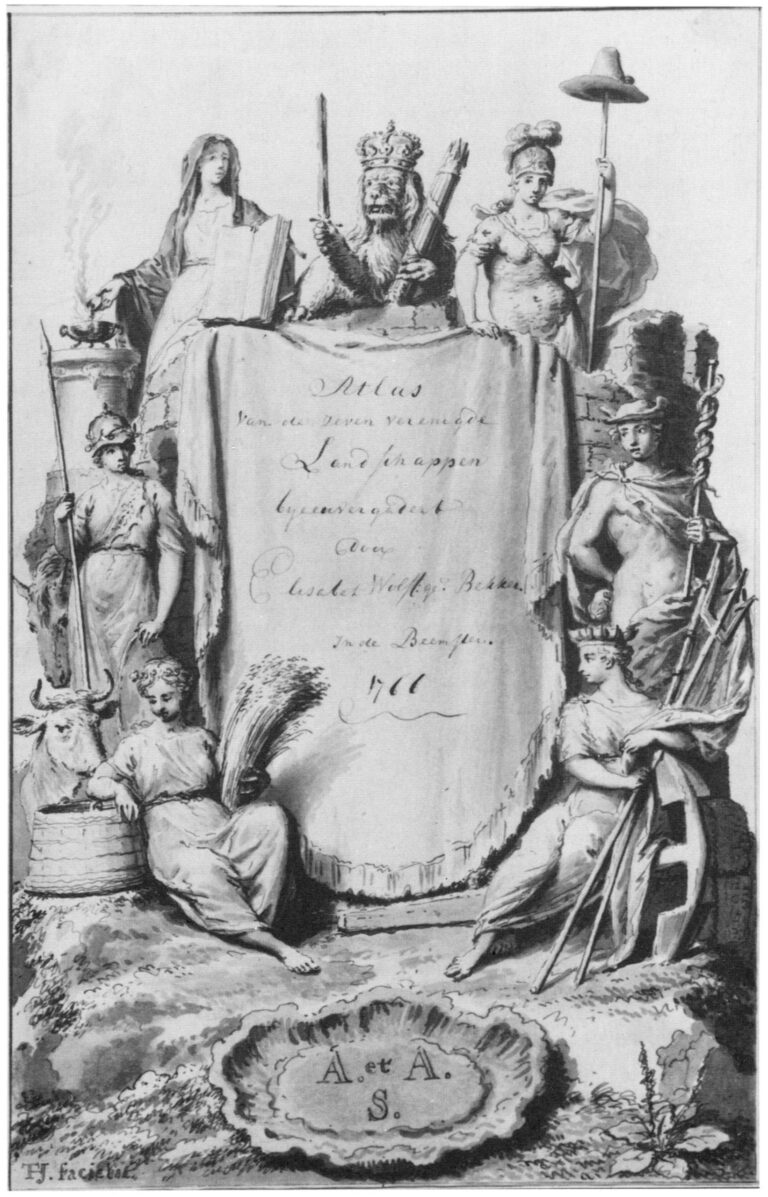 Atlas
van de zeven verenigde
Landschappen
byeenvergadert
door
Elisabet Wolff. geb. Bekker
In de Beemster.
1766
A. et A.
S.
HJ. faciebat.